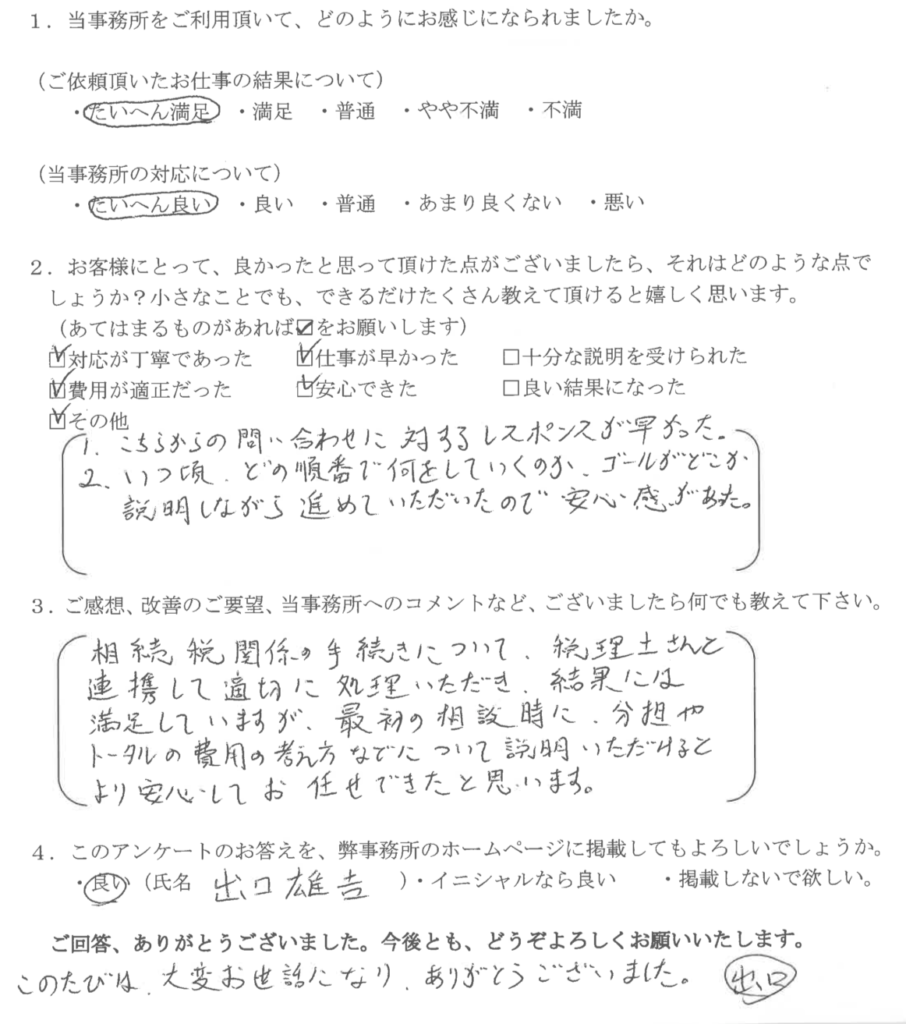 １．当事務所をご利用頂いて、どのようにお感じになられましたか。
（ご依頼頂いたお仕事の結果について）
・たいへん満足　・満足　・普通　・やや不満　・不満
（当事務所の対応について）
・たいへん良い　・良い　・普通　・あまり良くない　・悪い
２．お客様にとって、良かったと思って頂けた点がございましたら、それはどのような点で
しょうか？小さなことでも、できるだけたくさん教えて頂けると嬉しく思います。
（あてはまるものがあれば☑をお願いします）
☑対応が丁寧であった　☑仕事が早かった　□十分な説明を受けられた
☑費用が適正だった　☑安心できた　□良い結果になった
☑その他
1. こちらからの問い合わせに対するレスポンスが早かった。
2. いつ頃、どの順番で何をしていくのか、ゴールがどこか
説明しながら進めていただいたので安心感があった。
３．ご感想、改善のご要望、当事務所へのコメントなど、ございましたら何でも教えて下さい。
相続税関係の手続きについて、税理士さんと
連携して適切に処理いただき、結果には
満足していますが、最初の相談時に、分担や
トータルの費用の考え方などについて説明いただけると
より安心してお任せできたと思います。
４．このアンケートのお答えを、弊事務所のホームページに掲載してもよろしいでしょうか。
・良い（氏名　出口雄吉　）・イニシャルなら良い　・掲載しないで欲しい。
ご回答、ありがとうございました。今後とも、どうぞよろしくお願いいたします。
このたびは、大変お世話になり、ありがとうございました。　出口